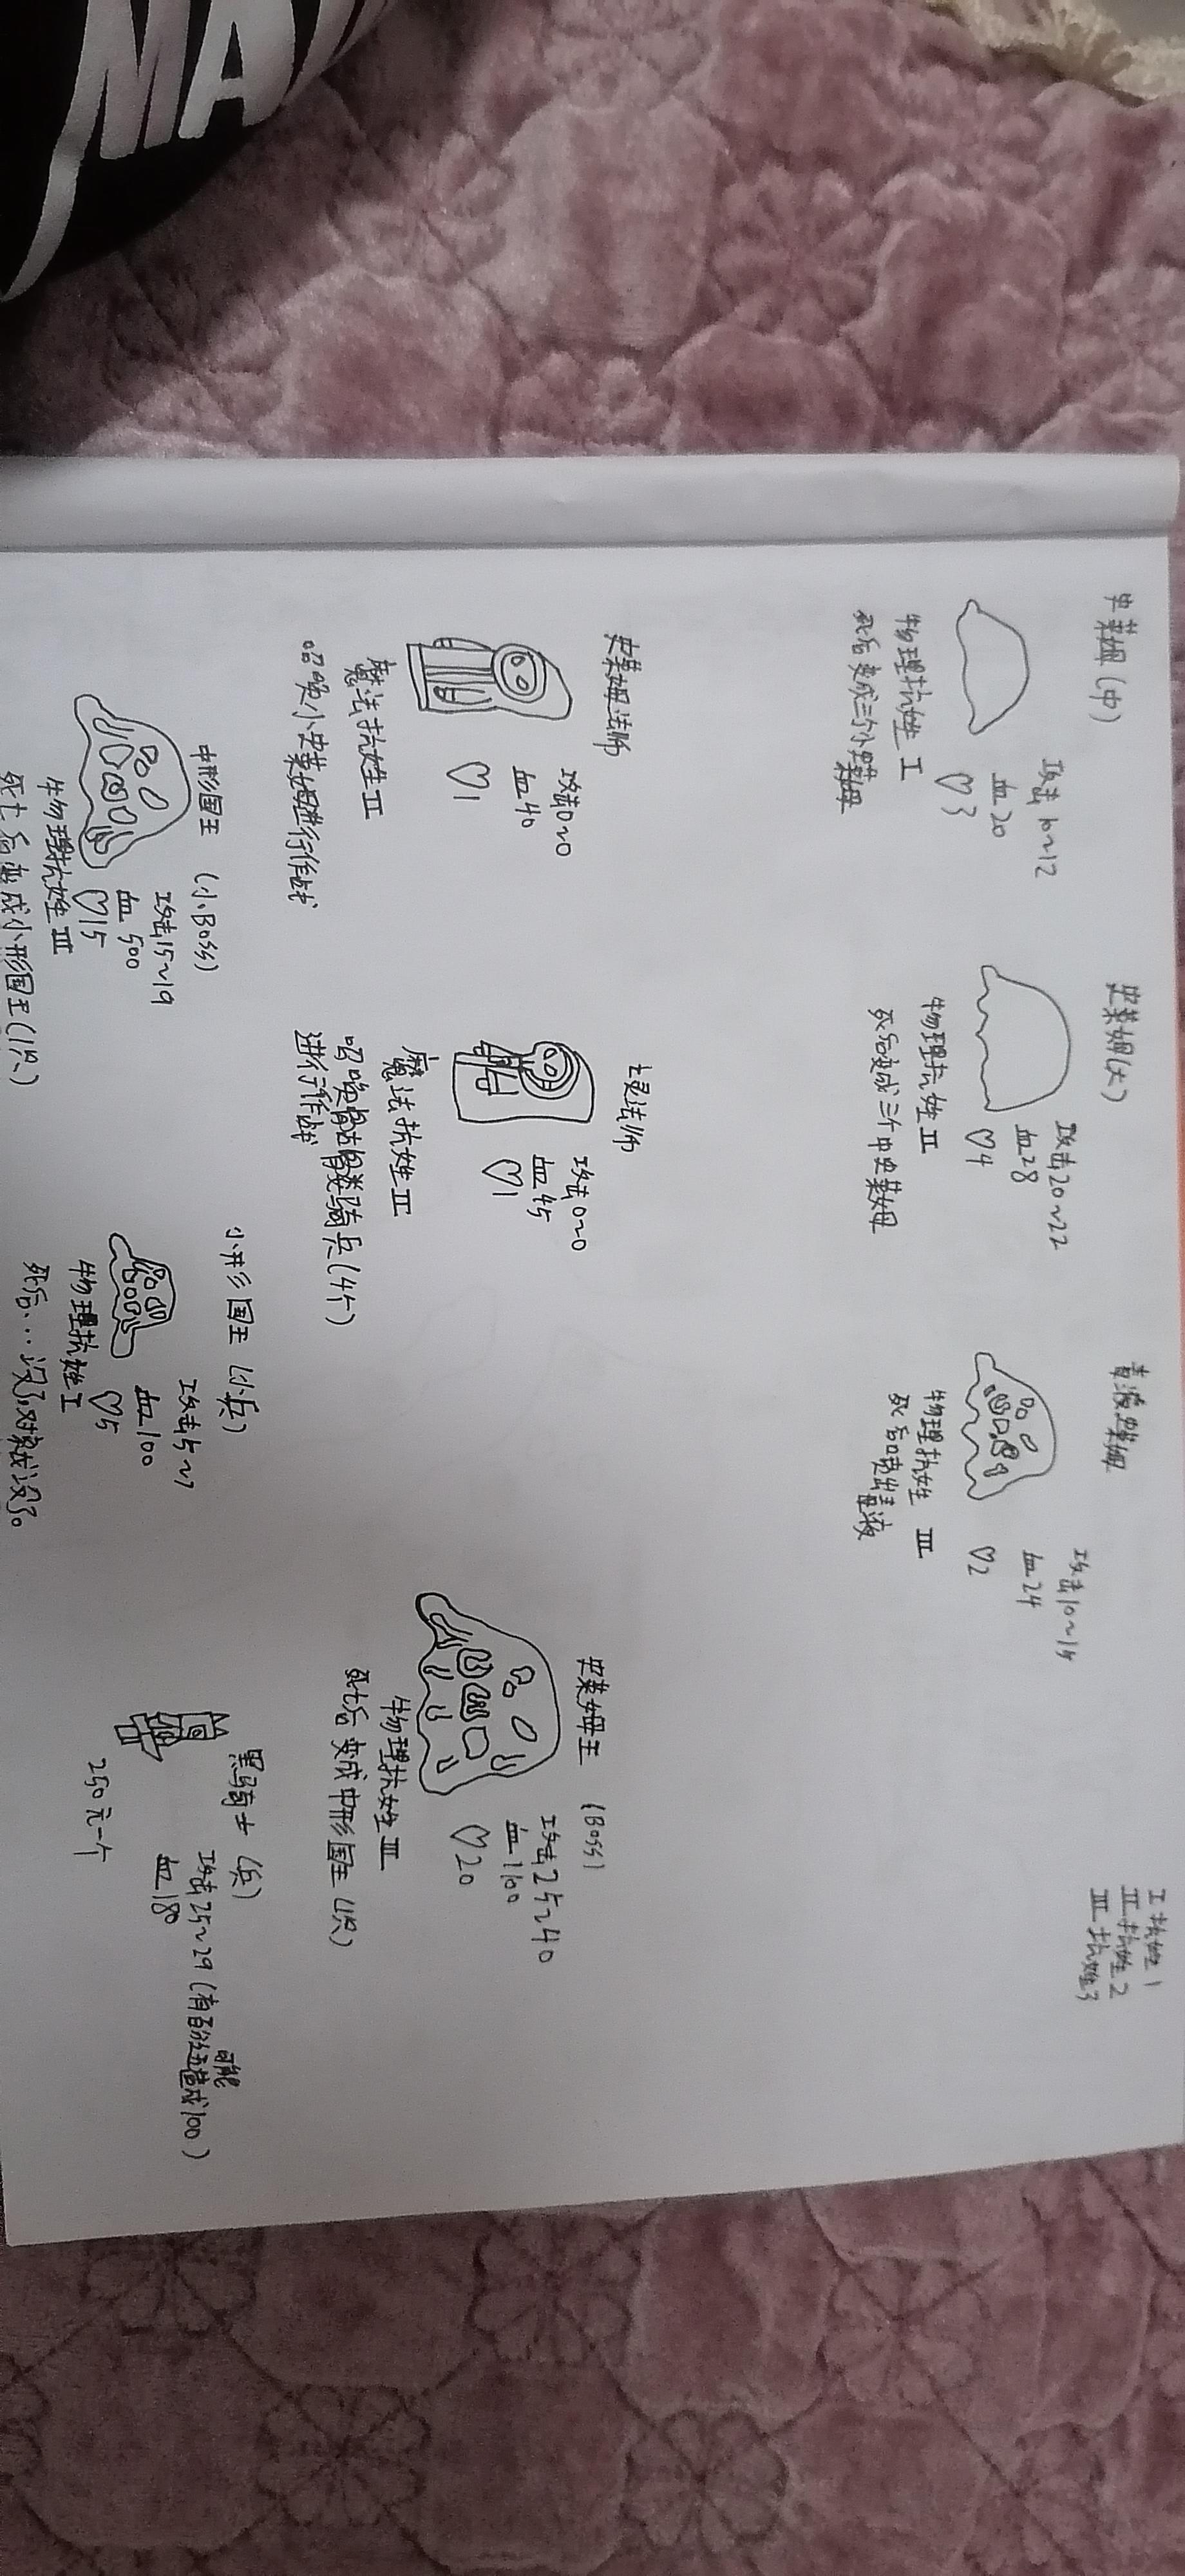 I 抗性1
II 抗性2
III 抗性3
史莱姆（中）
攻击10~12
血20
♡3
物理抗性 I
死后变成三个小史莱姆
史莱姆（大）
攻击20~22
血28
♡4
物理抗性 II
死后变成三个中史莱姆
毒液史莱姆
攻击10~15
血24
♡2
物理抗性 III
死后喷出毒液
史莱姆法师
攻击0~0
血40
♡1
魔法抗性II
召唤小史莱姆进行作战
法师
攻击0~0
血45
♡1
魔法抗性II
召唤骑兵（4个）
进行作战
史莱姆王 （Boss）
攻击25~40
血1100
♡20
物理抗性III
死亡后变成中形国王（1只）
中形国王 （小Boss）
攻击15~19
血500
♡15
物理抗性III
死亡后变成小形国王（1只）
小形国王（小兵）
攻击5~7
血100
♡5
物理抗性I
死后…没了，对就没了。
黑骑士（兵）
攻击25~29（有可能造成100）
血180
250元一个
MA